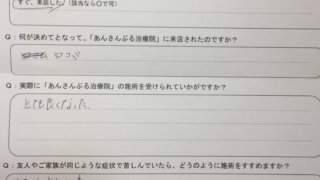 すぐ、来店した／（該当なら○で可）
Q：何が決めてとなって、「あんさんぶる治療院」に来店されたのですか？
口コミ
Q：実際に「あんさんぶる治療院」の施術を受けられていかがですか？
とても良くなった
Q：友人やご家族が同じような症状で苦しんでいたら、どのように施術をすすめますか？